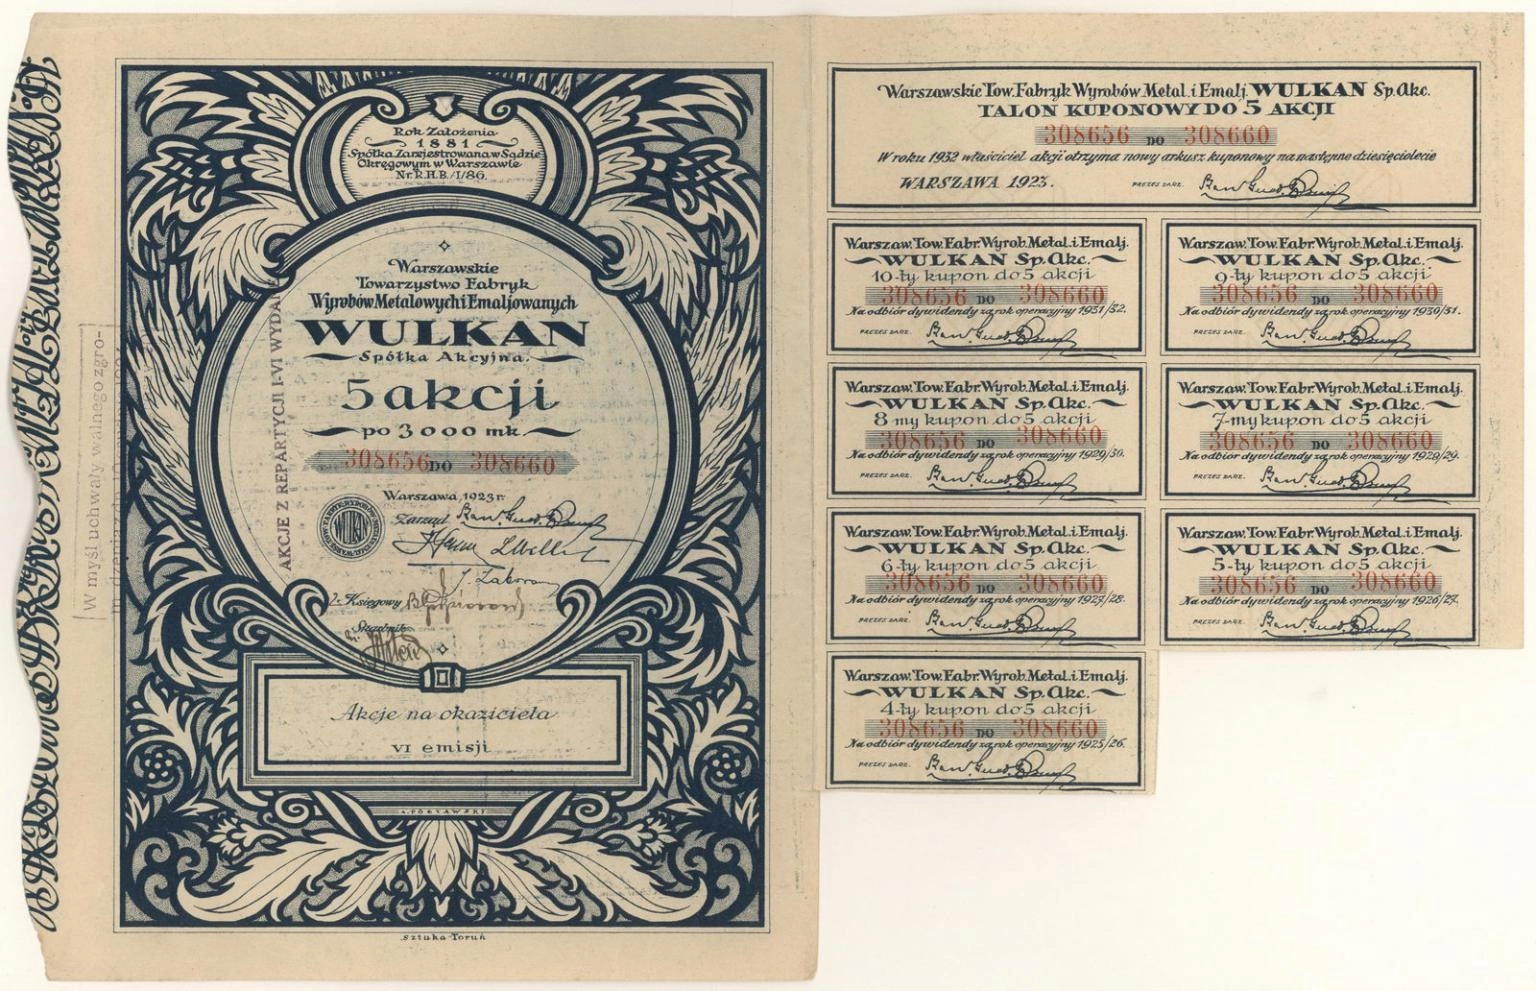 Rok Założenia
1881
Spółka Zarejestrowana w Sądzie
Okręgowym w Warszawie
Nr. R.H.B./I/86.
Warszawskie
Towarzystwo Fabryk
Wyrobów Metalowych i Emaljowanych
WULKAN
Spółka Akcyjna.
5 akcji
po 3000 mk.
308656 DO 308660
Warszawa, 1923 r.
Zarząd
Księgowy
Skarbnik
Akcje na okaziciela
VI emisji
A. PÓŁTAWSKI
Sztuka-Toruń
AKCJE Z REPARTYCJI I-VI WYDANE
W myśl uchwały walnego zgro-
Warszawskie Tow. Fabryk Wyrobów Metal. i Emalj. WULKAN Sp. Akc.
TALON KUPONOWY DO 5 AKCJI
308656 DO 308660
W roku 1932 właściciel akcji otrzyma nowy arkusz kuponowy na następne dziesięciolecie
WARSZAWA 1923.
PREZES ZARZ.
Warszaw. Tow. Fabr. Wyrob. Metal. i Emalj.
WULKAN Sp. Akc.
10-ty kupon do 5 akcji
308656 DO 308660
Na odbiór dywidendy za rok operacyjny 1931/32.
PREZES ZARZ.
Warszaw. Tow. Fabr. Wyrob. Metal. i Emalj.
WULKAN Sp. Akc.
9-ty kupon do 5 akcji
308656 DO 308660
Na odbiór dywidendy za rok operacyjny 1930/31.
PREZES ZARZ.
Warszaw. Tow. Fabr. Wyrob. Metal. i Emalj.
WULKAN Sp. Akc.
8-my kupon do 5 akcji
308656 DO 308660
Na odbiór dywidendy za rok operacyjny 1929/30.
PREZES ZARZ.
Warszaw. Tow. Fabr. Wyrob. Metal. i Emalj.
WULKAN Sp. Akc.
7-my kupon do 5 akcji
308656 DO 308660
Na odbiór dywidendy za rok operacyjny 1928/29.
PREZES ZARZ.
Warszaw. Tow. Fabr. Wyrob. Metal. i Emalj.
WULKAN Sp. Akc.
6-ty kupon do 5 akcji
308656 DO 308660
Na odbiór dywidendy za rok operacyjny 1927/28.
PREZES ZARZ.
Warszaw. Tow. Fabr. Wyrob. Metal. i Emalj.
WULKAN Sp. Akc.
5-ty kupon do 5 akcji
308656 DO 308660
Na odbiór dywidendy za rok operacyjny 1926/27.
PREZES ZARZ.
Warszaw. Tow. Fabr. Wyrob. Metal. i Emalj.
WULKAN Sp. Akc.
4-ty kupon do 5 akcji
308656 DO 308660
Na odbiór dywidendy za rok operacyjny 1925/26.
PREZES ZARZ.